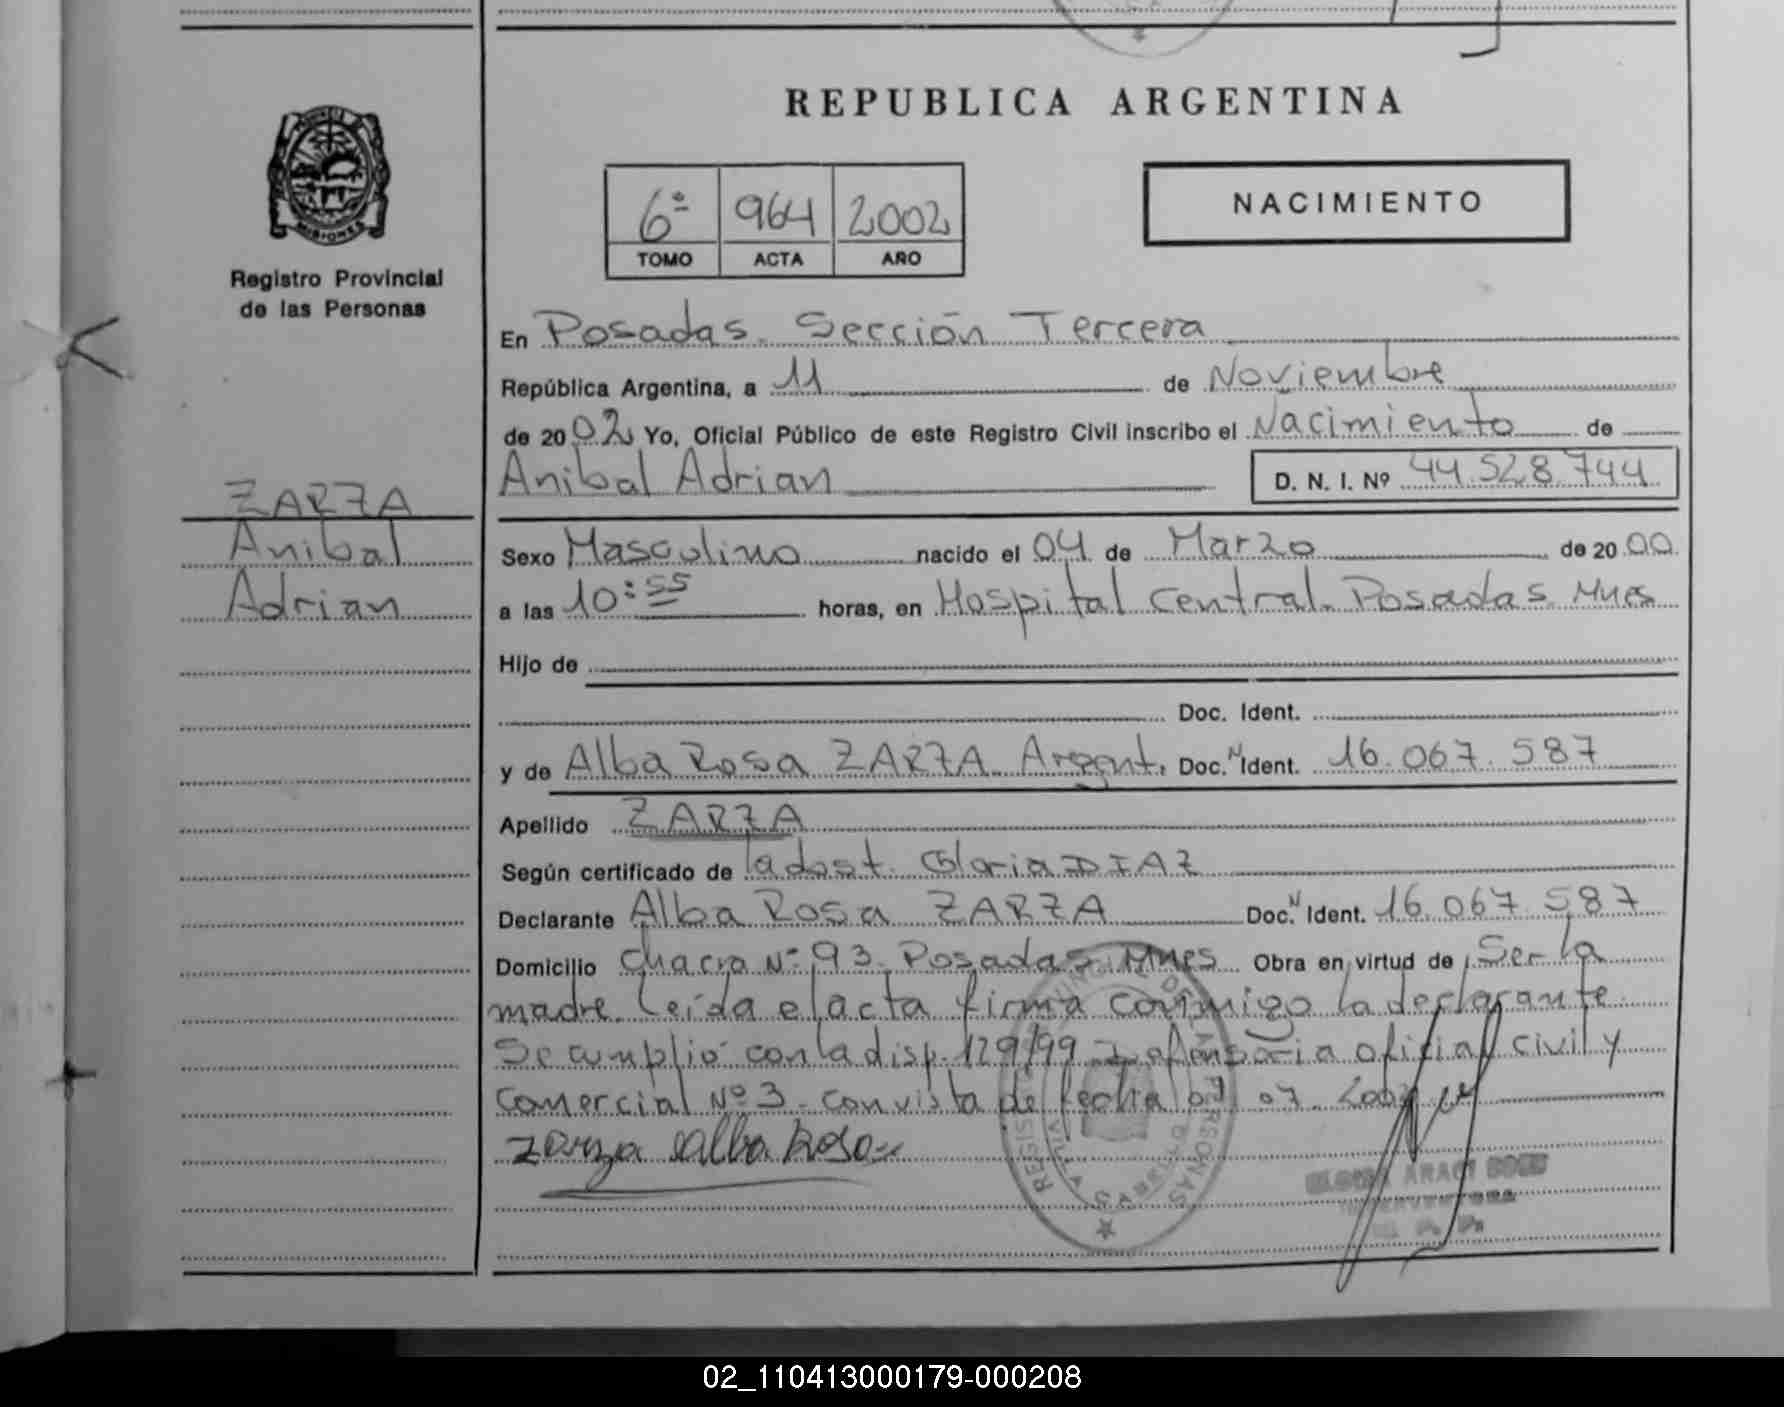 REPUBLICA ARGENTINA
MISIONES
Registro Provincial
de las Personas
6ª 964 2002
TOMO ACTA AÑO
NACIMIENTO
En Posadas. Sección Tercera
República Argentina, a 11 de Noviembre
de 2002 Yo, Oficial Público de este Registro Civil inscribo el Nacimiento de
Anibal Adrian D. N. I. Nº 44.528.744
ZARZA
Anibal
Adrian
Sexo Masculino nacido el 04 de Marzo de 2000
a las 10:55 horas, en Hospital Central. Posadas Mnes
Hijo de
Doc. Ident.
y de Alba Rosa ZARZA Argent. Doc. N Ident. 16.067.587
Apellido ZARZA
Según certificado de la obst. Gloria DIAZ
Declarante Alba Rosa ZARZA Doc. N Ident. 16.067.587
Domicilio Chacra Nº 93. Posadas. Mnes Obra en virtud de Ser la
madre. Leída el acta firma conmigo la declarante.
Se cumplió con la disp. 129/99 Defensoria oficial civil y
Comercial Nº 3. con vista de fecha 07. 2002
Zarza Alba Rosa
REGISTRO PROVINCIAL DE LAS PERSONAS
ARACI
INTERVENTORA
02_110413000179-000208